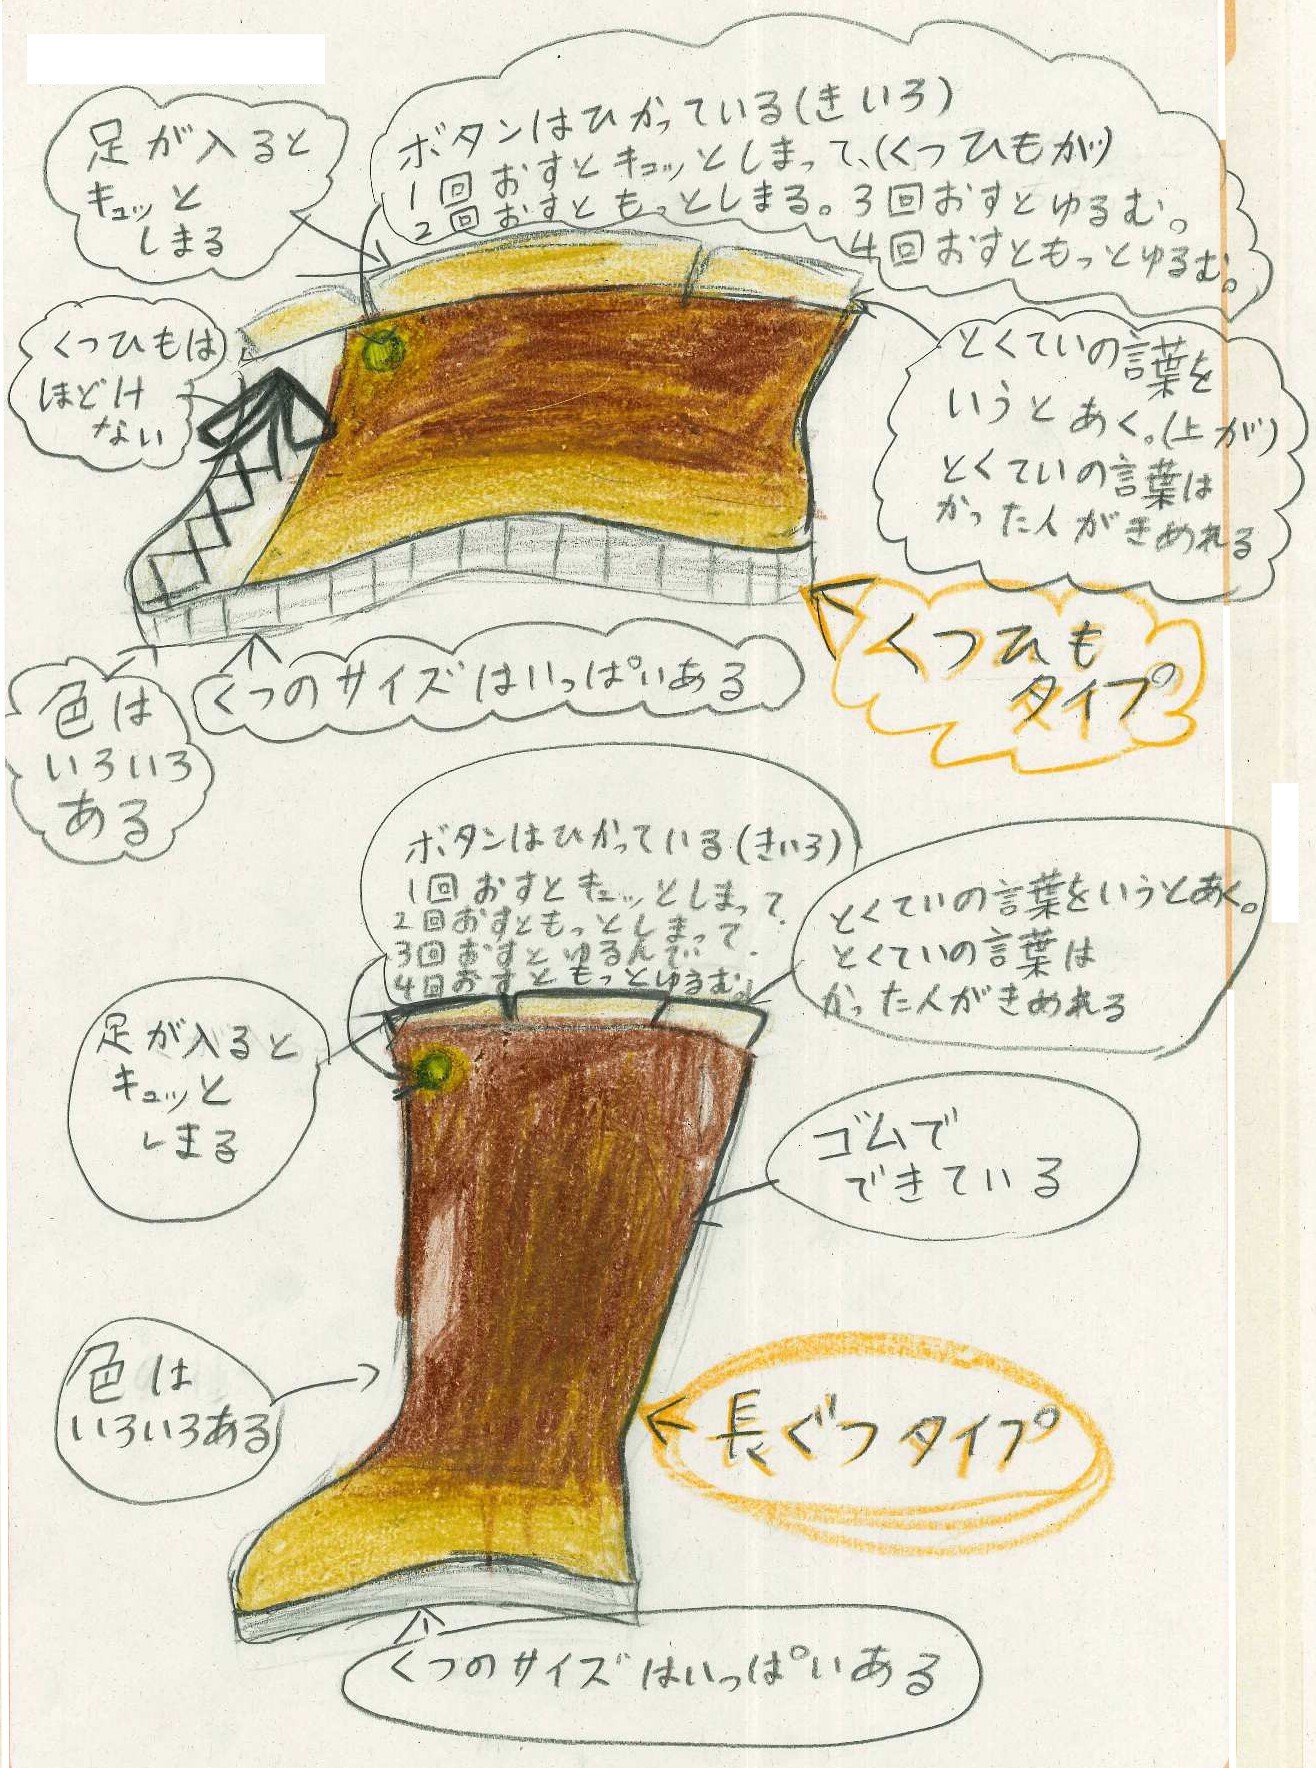 足が入ると
キュッと
しまる
ボタンはひかっている(きいろ)
1回おすとキュッとしまって、(くつひもが)
2回おすともっとしまる。3回おすとゆるむ。
4回おすともっとゆるむ。
くつひもは
ほどけ
ない
とくていの言葉を
いうとあく。(上が)
とくていの言葉は
かった人がきめれる
くつひも
タイプ
くつのサイズはいっぱいある
色は
いろいろ
ある
ボタンはひかっている(きいろ)
1回おすとキュッとしまって
2回おすともっとしまって
3回おすとゆるんで
4回おすともっとゆるむ。
とくていの言葉をいうとあく。
とくていの言葉は
かった人がきめれる
足が入ると
キュッと
しまる
ゴムで
できている
色は
いろいろある
長ぐつタイプ
くつのサイズはいっぱいある